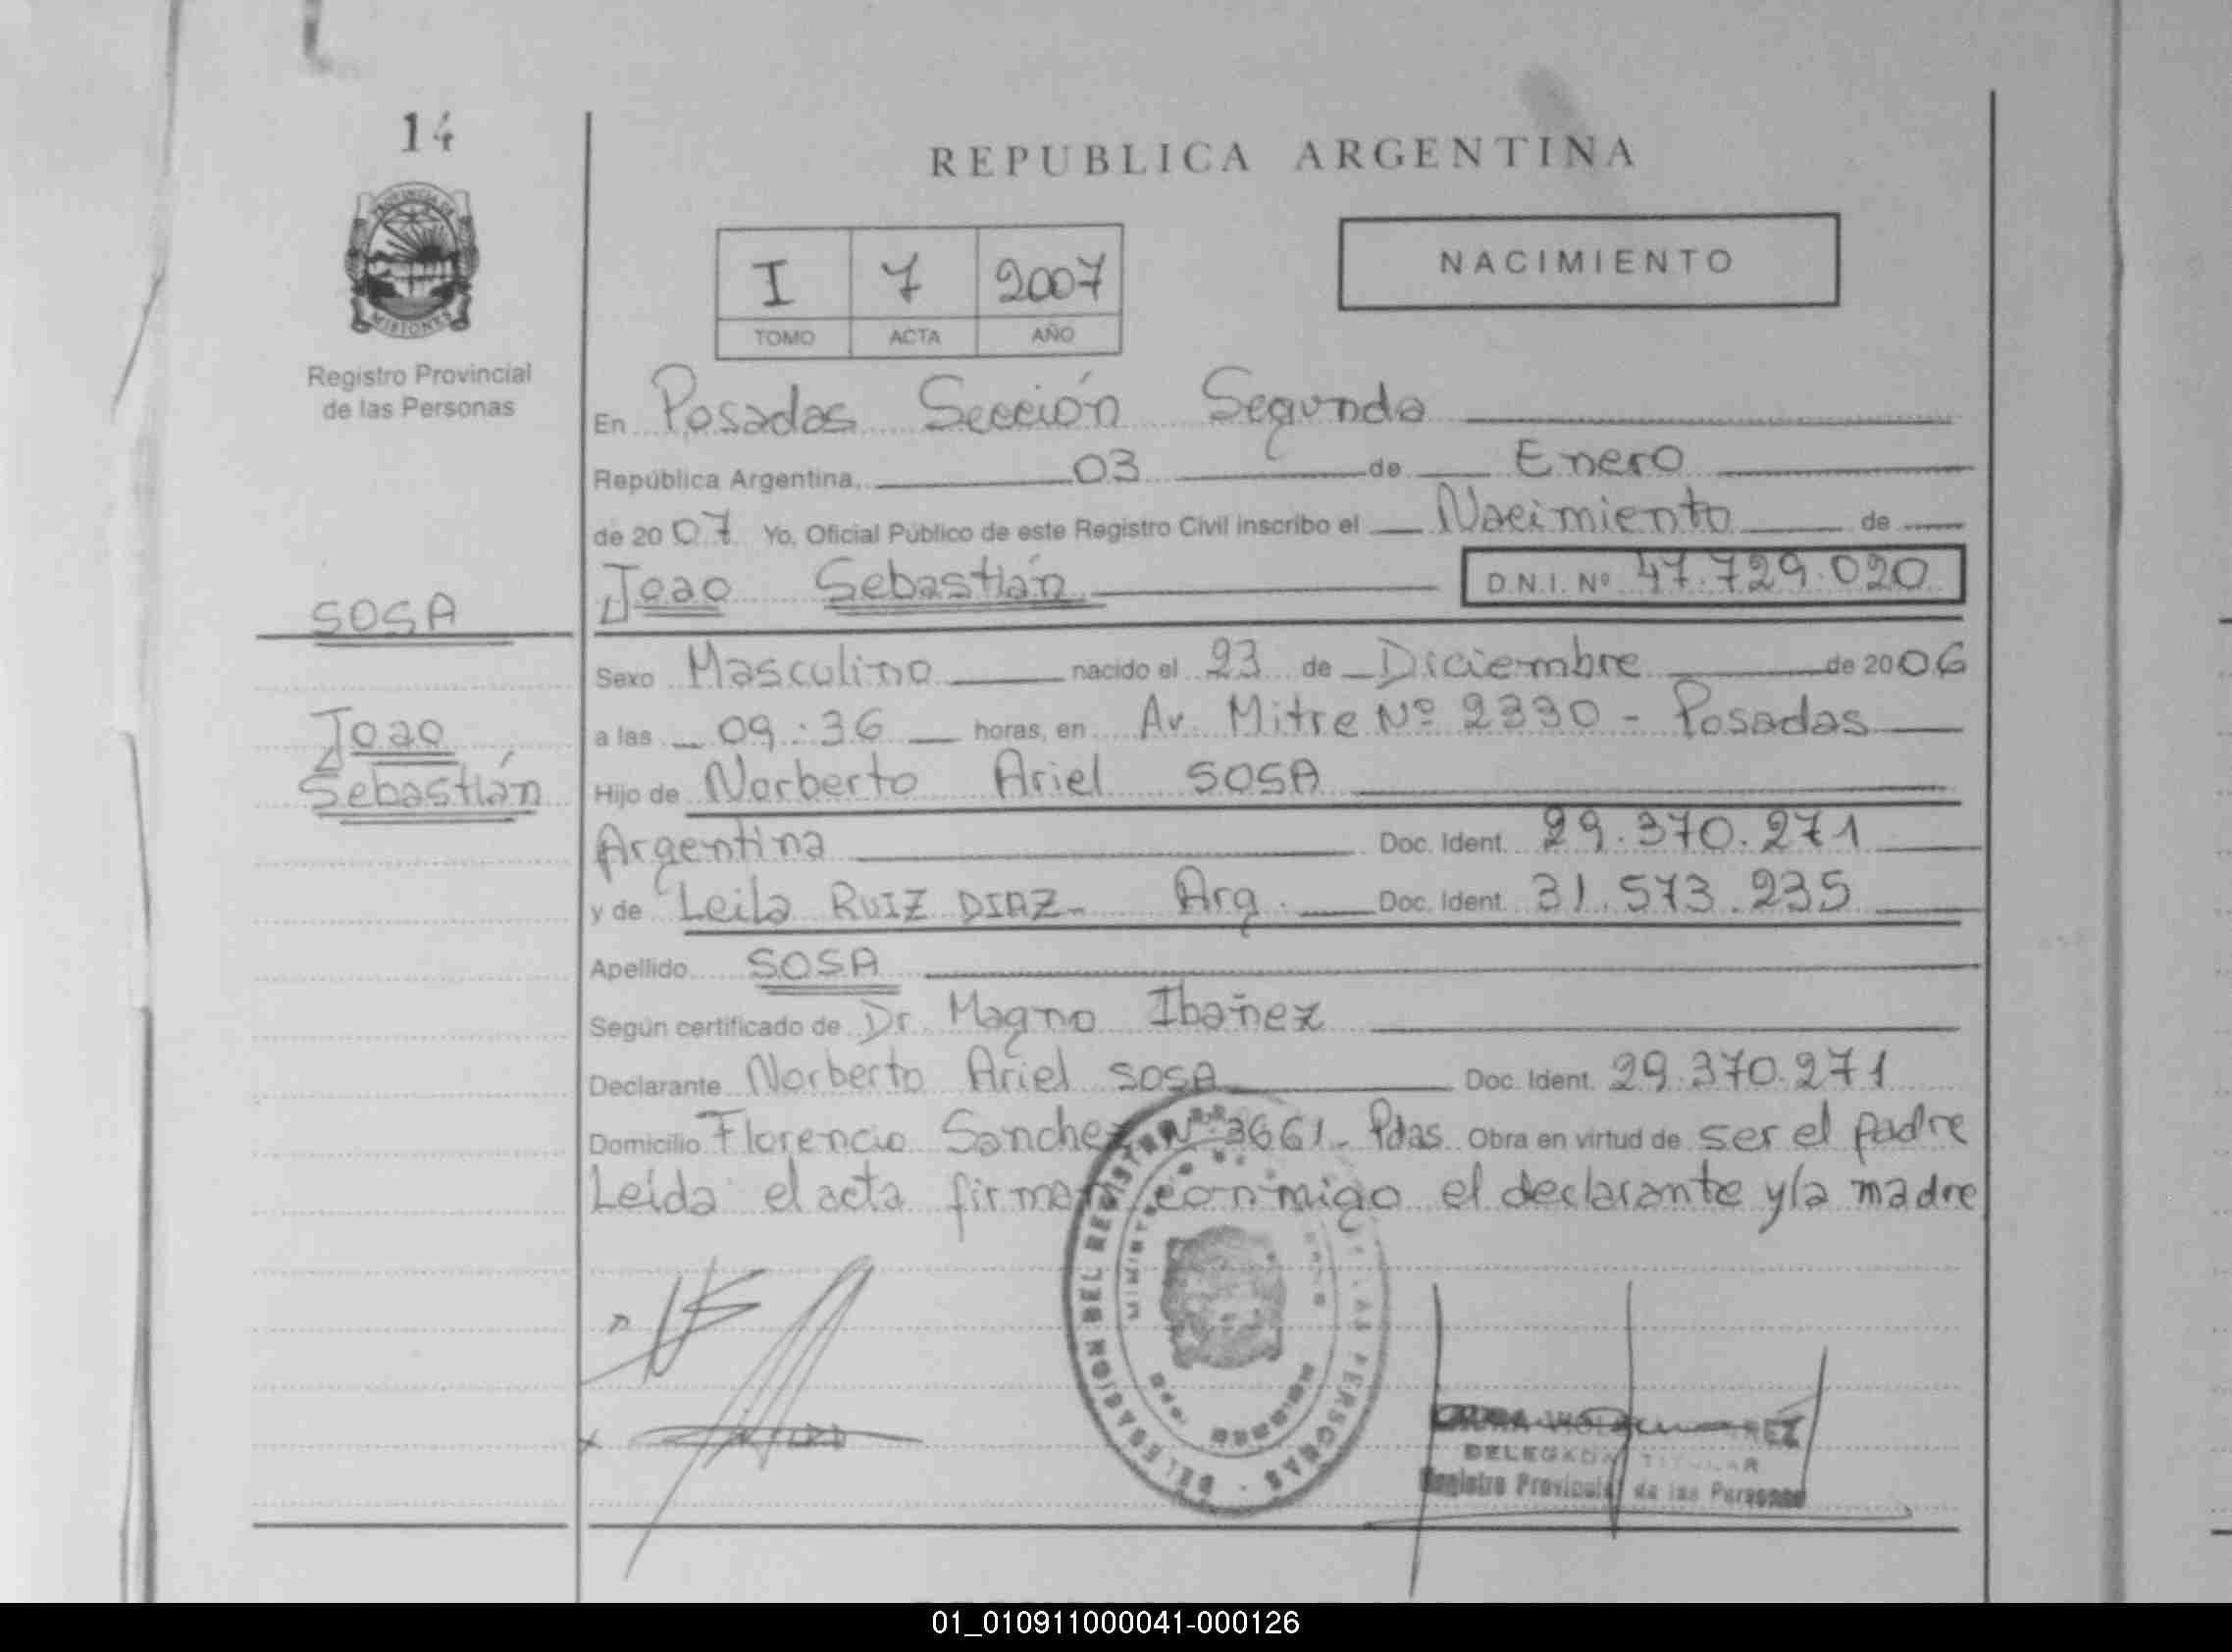 14
REPUBLICA ARGENTINA
PROVINCIA DE
MISIONES
I 7 2007
NACIMIENTO
TOMO ACTA AÑO
Registro Provincial
de las Personas
En Posadas Sección Segunda
República Argentina, 03 de Enero
de 2007 Yo, Oficial Público de este Registro Civil inscribo el Nacimiento de
Joao Sebastián D.N.I. Nº 47.729.020
SOSA
Sexo Masculino nacido el 23 de Diciembre de 2006
Joao
a las 09:36 horas, en Av. Mitre Nº 2330 - Posadas
Sebastián
Hijo de Norberto Ariel SOSA
Argentina Doc. Ident. 29.370.271
y de Leila RUIZ DIAZ- Arg. Doc. Ident. 31.573.235
Apellido SOSA
Según certificado de Dr. Magno Ibañez
Declarante Norberto Ariel SOSA Doc. Ident. 29.370.271
Domicilio Florencio Sanchez Nº 3661- Pdas. Obra en virtud de ser el padre
Leída el acta firman conmigo el declarante y la madre
DELEGACION DEL REGISTRO DE LAS PERSONAS
DELEGADA TITULAR
Registro Provincial de las Personas
01_010911000041-000126